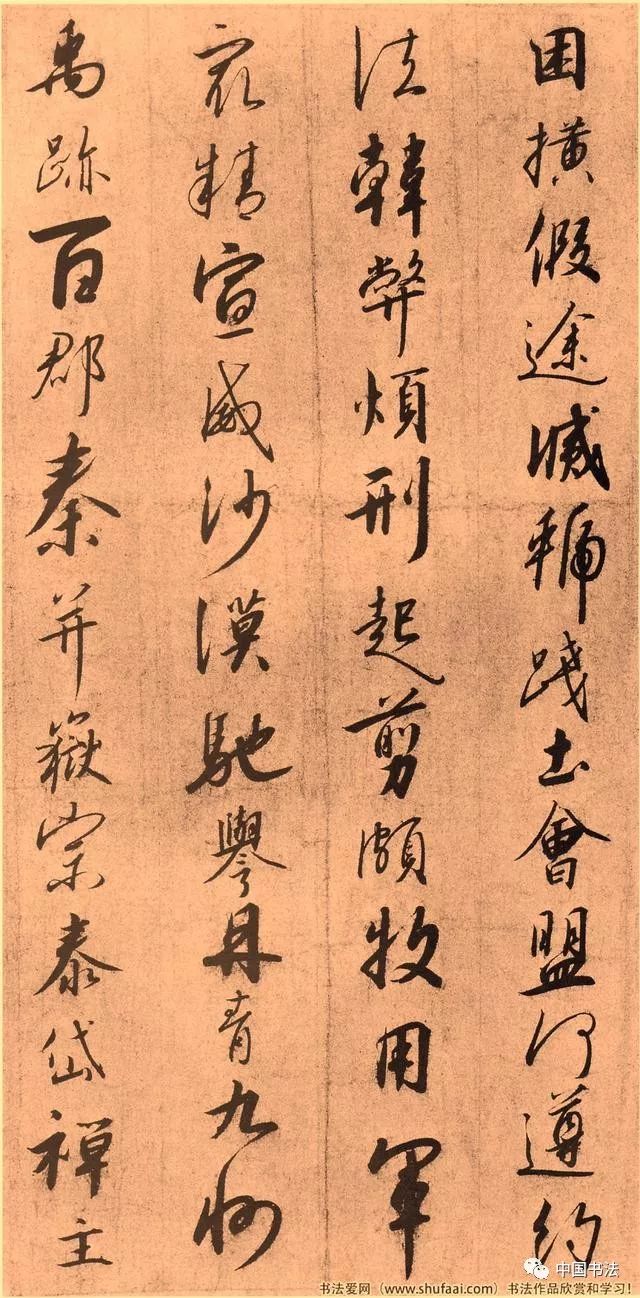 困横假途滅虢踐土會盟何遵約
法韓弊煩刑起翦頗牧用軍
最精宣威沙漠馳譽丹青九州
禹跡百郡秦并嶽宗泰岱禪主
中国书法
书法爱网（www.shufaai.com）书法作品欣赏和学习！